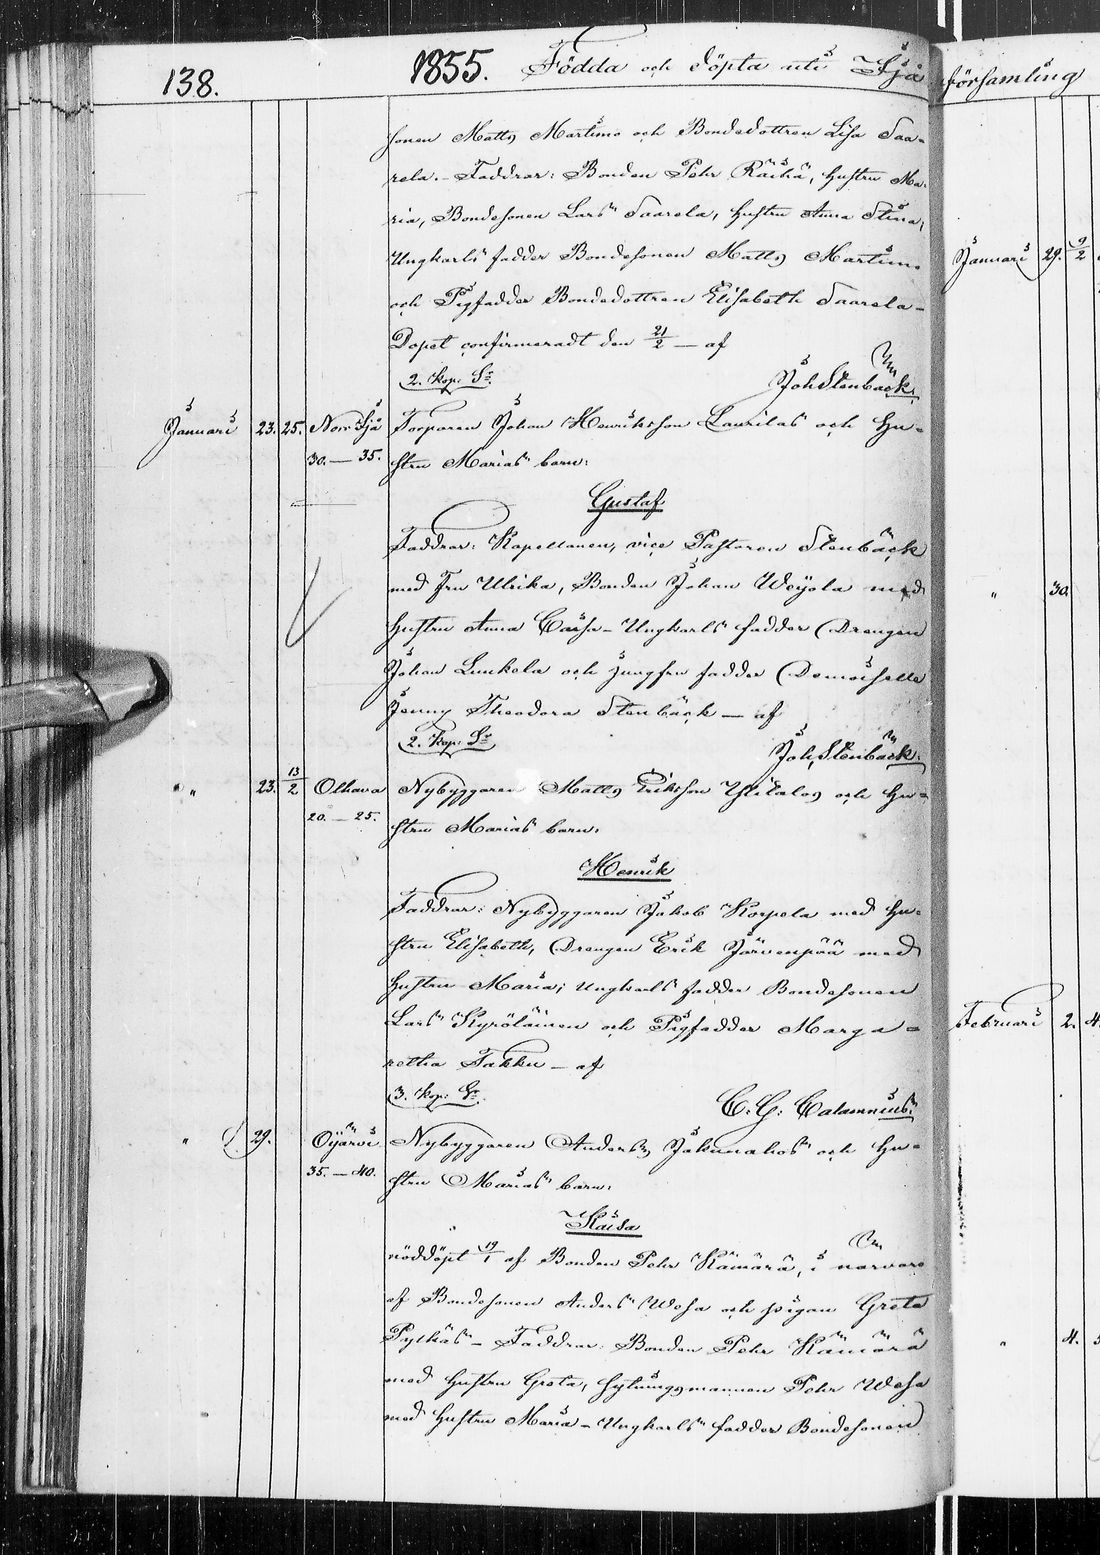 138.
1855. Födda och döpta uti Ijå församling
sonen Matts Martimo och Bondedottren Lisa Saa-
rela. – Faddrar: Bonden Pehr Räihä, hustru Ma-
ria, Bondesonen Lars Saarela, hustru Anna Stina,
Ungkarls fadder Bondesonen Matts Martimo
och Pigfadder Bondedottren Elisabeth Saarela –
Dopet confirmeradt den 21/2 — af
2. kop. Sr.
Joh. Stenbäck.
Januari 23. 25. Norr Ijå Torparen Johan Henriksson Laurilas och hu-
30. — 35. stru Marias barn:
Gustaf
Faddrar: Kapellanen, vice Pastoren Stenbäck
med Fru Ulrika, Bonden Johan Weijola med
hustru Anna Caisa – Ungkarls fadder Drengen
Johan Lunkela och jungfru fadder Demoiselle
Jenny Theodora Stenbäck — af
2. kop. Sr.
Joh. Stenbäck.
" " 23. 13/2 Olhava Nybyggaren Matts Eriksson Ylitalos och hu-
20. — 25. stru Marias barn:
Henrik
Faddrar: Nybyggaren Jakob Korpela med hu-
stru Elisabeth, Drengen Erik Järvenpää med
hustru Maria; Ungkarls fadder Bondesonen
Lars Kyröläinen och Pigfadder Marga-
retha Takku — af
3. kop.
C. G. Calamnius.
" 29. Oijärvi Nybyggaren Anders Jakunahos och hu-
35. — 40. stru Marias barn:
Kaisa
nöddöpt 19/1 af Bonden Pehr Kämärä, i närvaro
af Bondesonen Anders Wesa och pigan Greta
Pythäs – Faddrar: Bonden Pehr Kämärä
med hustru Greta, sytningsmannen Pehr Wesa
med hustru Maria – Ungkarls fadder Bondesonen
Januari 29. 9/2
" 30.
Februari 2. 4.
" 4. 5